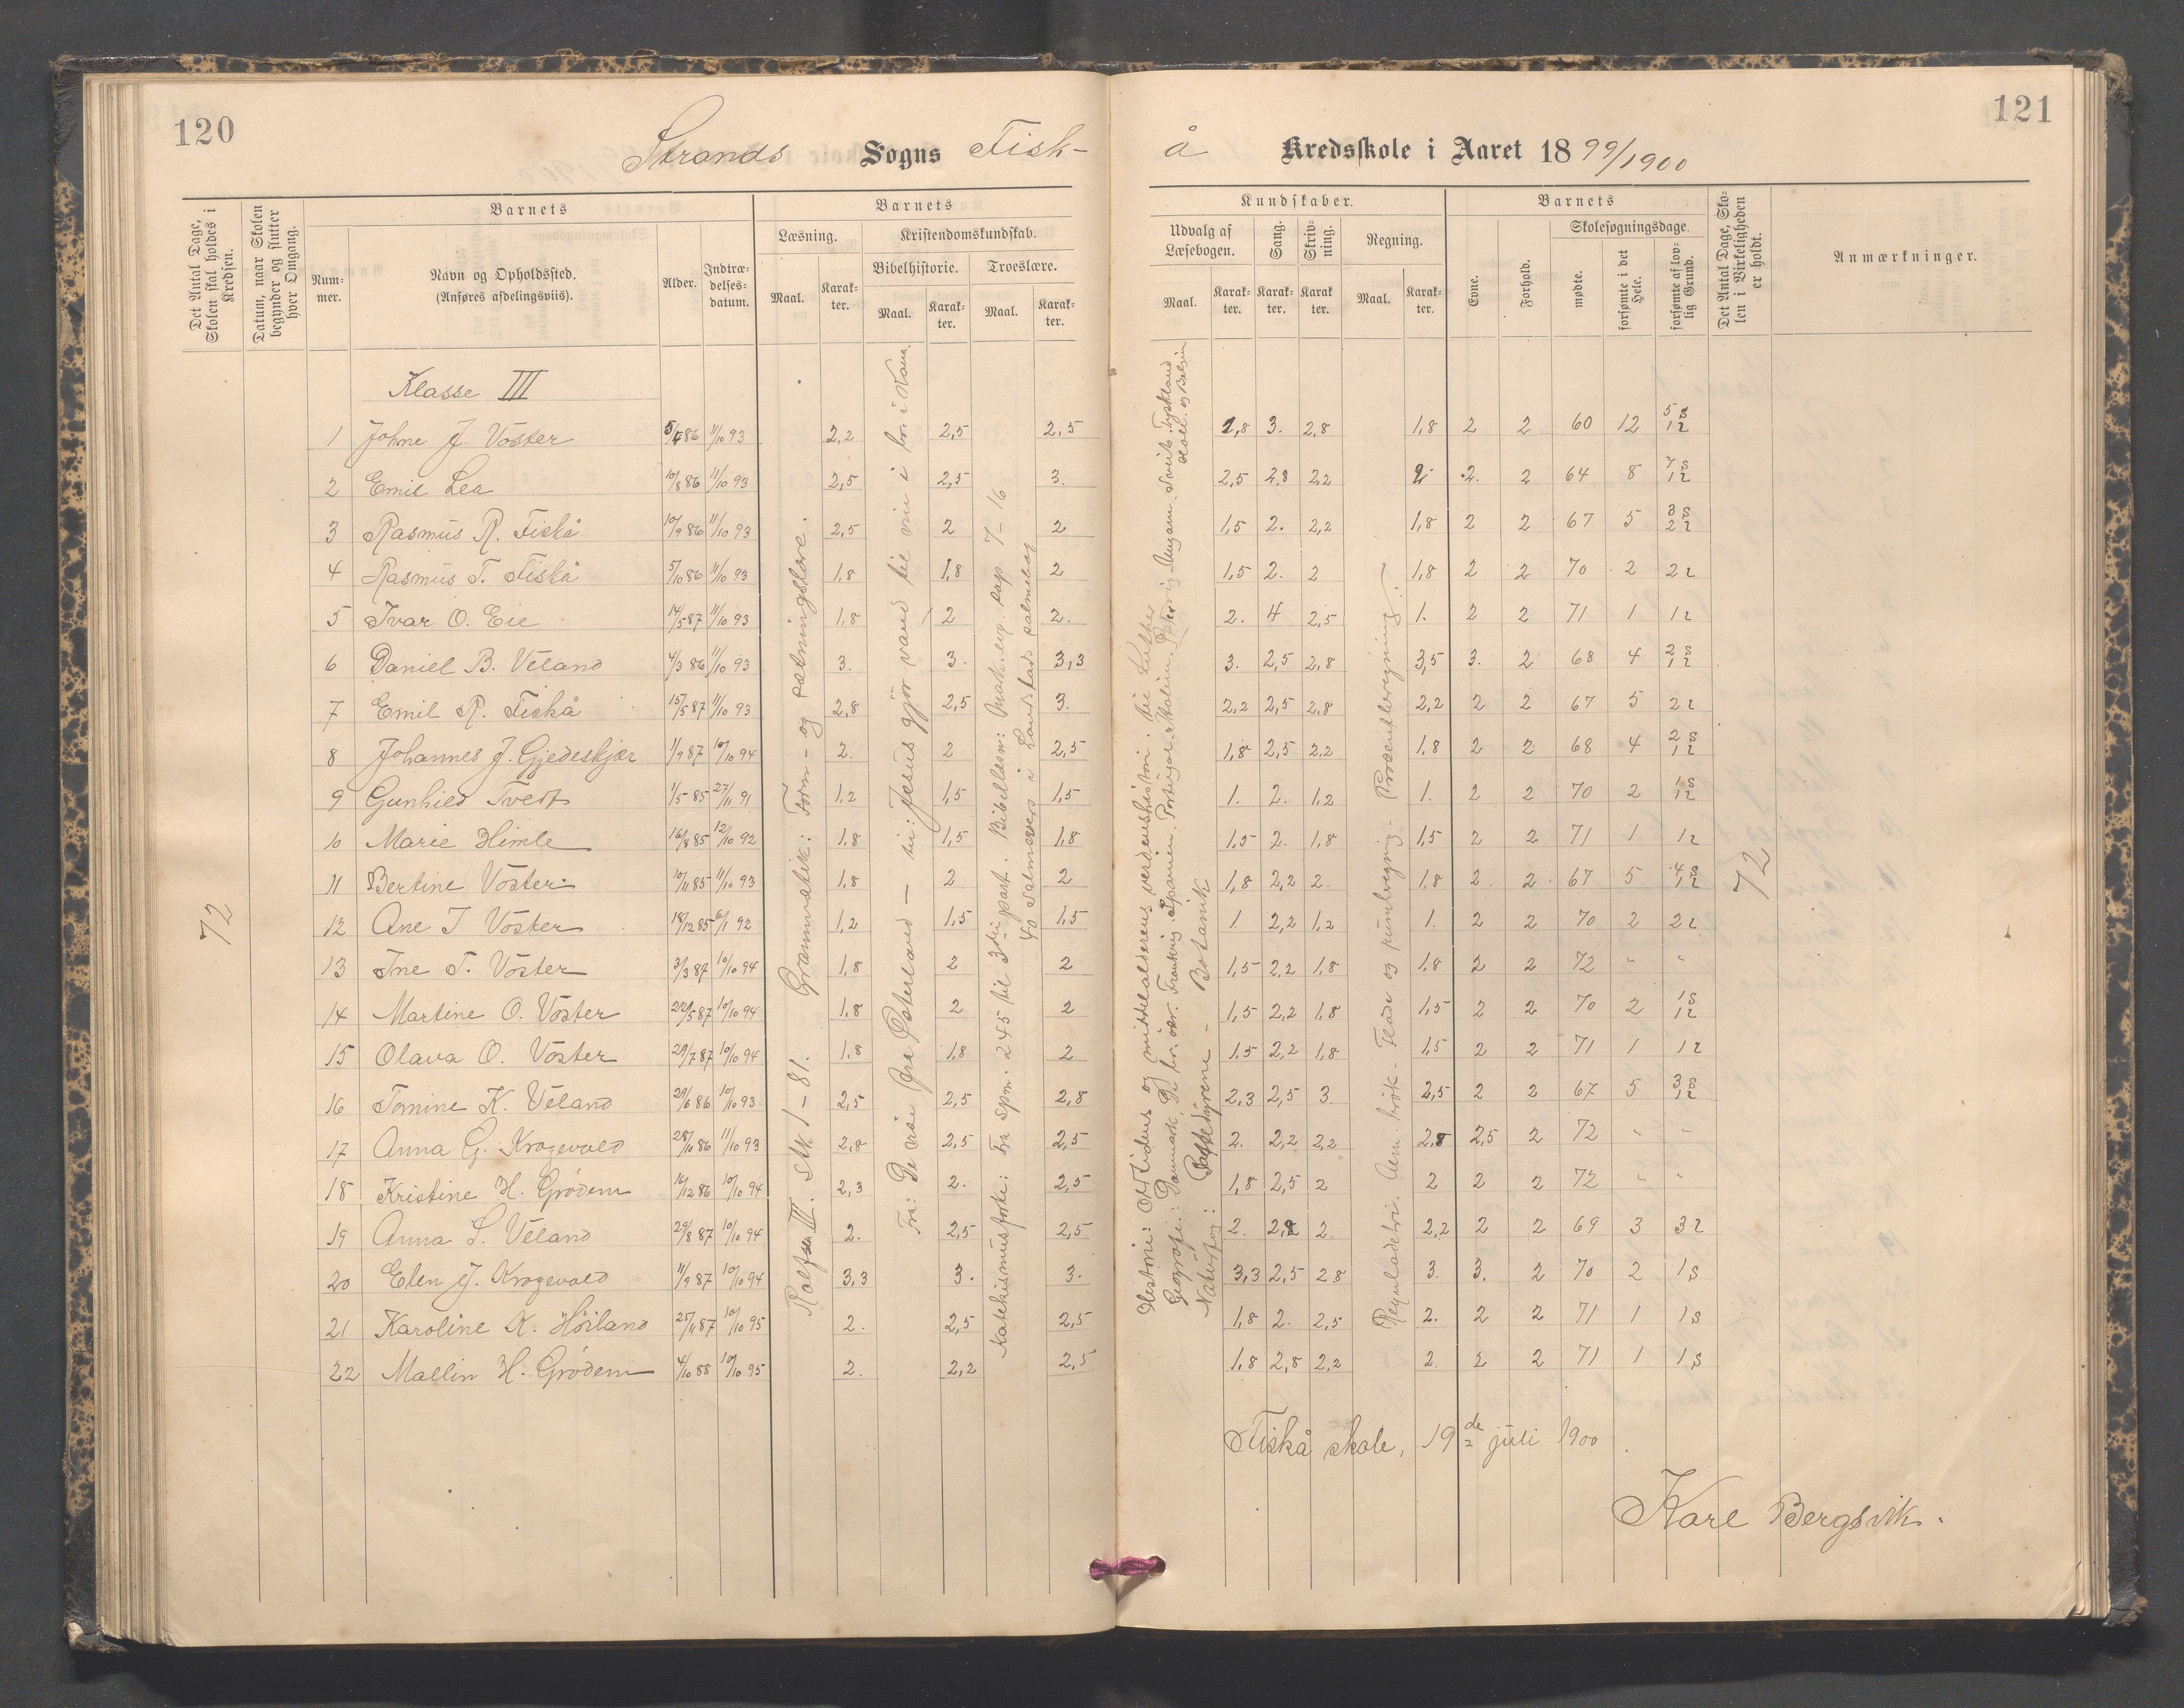 120
121
Strands Sogns Fisk-
å Kredsskole i Aaret 1899/1900
Det Antal Dage, Skolen skal holdes i Kredsen.
Datum, naar Skolen begynder og slutter hver Omgang.
Barnets
Num-
mer.
Navn og Opholdssted.
(Anføres afdelingsviis).
Alder.
Indtræ-
delses-
datum.
Barnets
Læsning.
Maal.
Karak-
ter.
Kristendomskundskab.
Bibelhistorie.
Maal.
Karak-
ter.
Troeslære.
Maal.
Karak-
ter.
Kundskaber.
Udvalg af
Læsebogen.
Maal.
Karak-
ter.
Sang.
Karak-
ter.
Skriv-
ning.
Karak
ter.
Regning.
Maal.
Karak-
ter.
Barnets
Evne.
Forhold.
Skolesøgningsdage.
mødte.
forsømte i det Hele.
forsømte af lov-
lig Grund.
Det Antal Dage, Sko-
len i Virkeligheden er holdt.
Anmærkninger.
Klasse III
1 Johne J. Vöster 5/4 86 11/10 93 2,2 2,5 2,5 1,8 3. 2,8 1,8 2 2 60 12 5 s 1 l
2 Emil Lea 10/8 86 11/10 93 2,5 2,5 3. 2,5 2,8 2,2 2. 2. 2 64 8 7 s 1 l
3 Rasmus R. Fiskå 10/9 86 11/10 93 2,5 2 2 1,5 2. 2,2 1,8 2 2 67 5 3 s 2 l
4 Rasmus T. Fiskå 5/10 86 11/10 93 1,8 1,8 2 1,5 2. 2 1,8 2 2 70 2 2 l
5 Ivar O. Eie 14/5 87 11/10 93 1,8 2 2. 2. 4 2,5 1. 2 2 71 1 1 l
6 Daniel B. Veland 4/3 86 11/10 93 3. 3. 3,3 3. 2,5 2,8 3,5 3. 2 68 4 2 s 1 l
7 Emil R. Fiskå 15/5 87 11/10 93 2,8 2,5 3. 2,2 2,5 2,8 2,2 2 2 67 5 2 l
8 Johannes J. Gjedeskjær 1/9 87 10/10 94 2. 2 2,5 1,8 2,5 2,2 1,8 2 2 68 4 2 s 1 l
9 Gunhild Tvedt 1/5 85 27/11 91 1,2 1,5 1,5 1. 2. 1,2 1. 2 2 70 2 1 s 1 l
10 Marie Himle 16/8 85 12/10 92 1,8 1,5 1,8 1,5 2. 1,8 1,5 2 2 71 1 1 l
11 Bertine Vöster 10/11 85 11/10 93 1,8 2 2 1,8 2,2 2. 1,8 2 2 67 5 4 s 1 l
12 Ane I Vöster 18/12 85 6/1 92 1,2 1,5 1,5 1 2,2 1,2 1. 2 2 70 2 2 l
13 Ine T. Vöster 3/3 87 10/10 94 1,8 2 2 1,5 2,2 1,8 1,8 2 2 72 " "
14 Martine O. Vöster 22/5 87 10/10 94 1,8 2 2 1,5 2,2 1,8 1,5 2 2 70 2 1 s 1 l
15 Olava O. Vöster 29/7 87 10/10 94 1,8 1,8 2 1,5 2,2 1,8 1,5 2 2 71 1 1 l
16 Tomine K. Veland 29/6 86 10/10 93 2,5 2,5 2,8 2,3 2,5 3. 2,5 2 2 67 5 3 s 1 l
17 Anna G. Krogevold 28/10 86 11/10 93 2,8 2,5 2,5 2. 2,2 2,2 2,8 2,5 2 72 " "
18 Kristine H. Grödem 16/12 86 10/10 94 2,3 2. 2,5 1,8 2,5 2 2 2 2 72 " "
19 Anna S. Veland 29/8 87 10/10 94 2. 2,5 2,5 2. 2,2 2. 2,2 2 2 69 3 3 l
20 Elen J. Krogevold 11/9 87 10/10 94 3,3 3. 3. 3,3 2,5 2,8 3. 3. 2 70 2 1 s
21 Karoline K. Höiland 25/11 87 10/10 95 2. 2,5 2,5 1,8 2. 2,5 2. 2 2 71 1 1 s
22 Mallin H. Grödem 4/10 88 10/10 95 2. 2,2 2,5 1,8 2,8 2,2 2. 2 2 71 1 1 s
72
72
Rolfsen III. Stk. 1-81. Grammatik: Form- og sætningslære.
Fra: De vise fra Østerland — til: Jesus gjør vand til vin i br. i Kana
Katekismusforkl: Fra spm. 245 til 3die part. Bibellæsn: Mark. evg. kap 7-16
40 salmevers i Landstads salmebog
Historie: Oldtidens og middelalderens verdenshistori. til Luther
Geografi: Danmark, De br. øer. Frankrig. Spanien. Portugal. Italien. Østerrig-Ungarn. Sveits. Tyskland
Holl. og Belgien
Naturfag: Pattedyrene - Botanik
Reguladetri. Alm. brök. Flade og rumberegning - Procentberegning.
Fiskå skole, 19de juli 1900.
Karl Bergsvik.